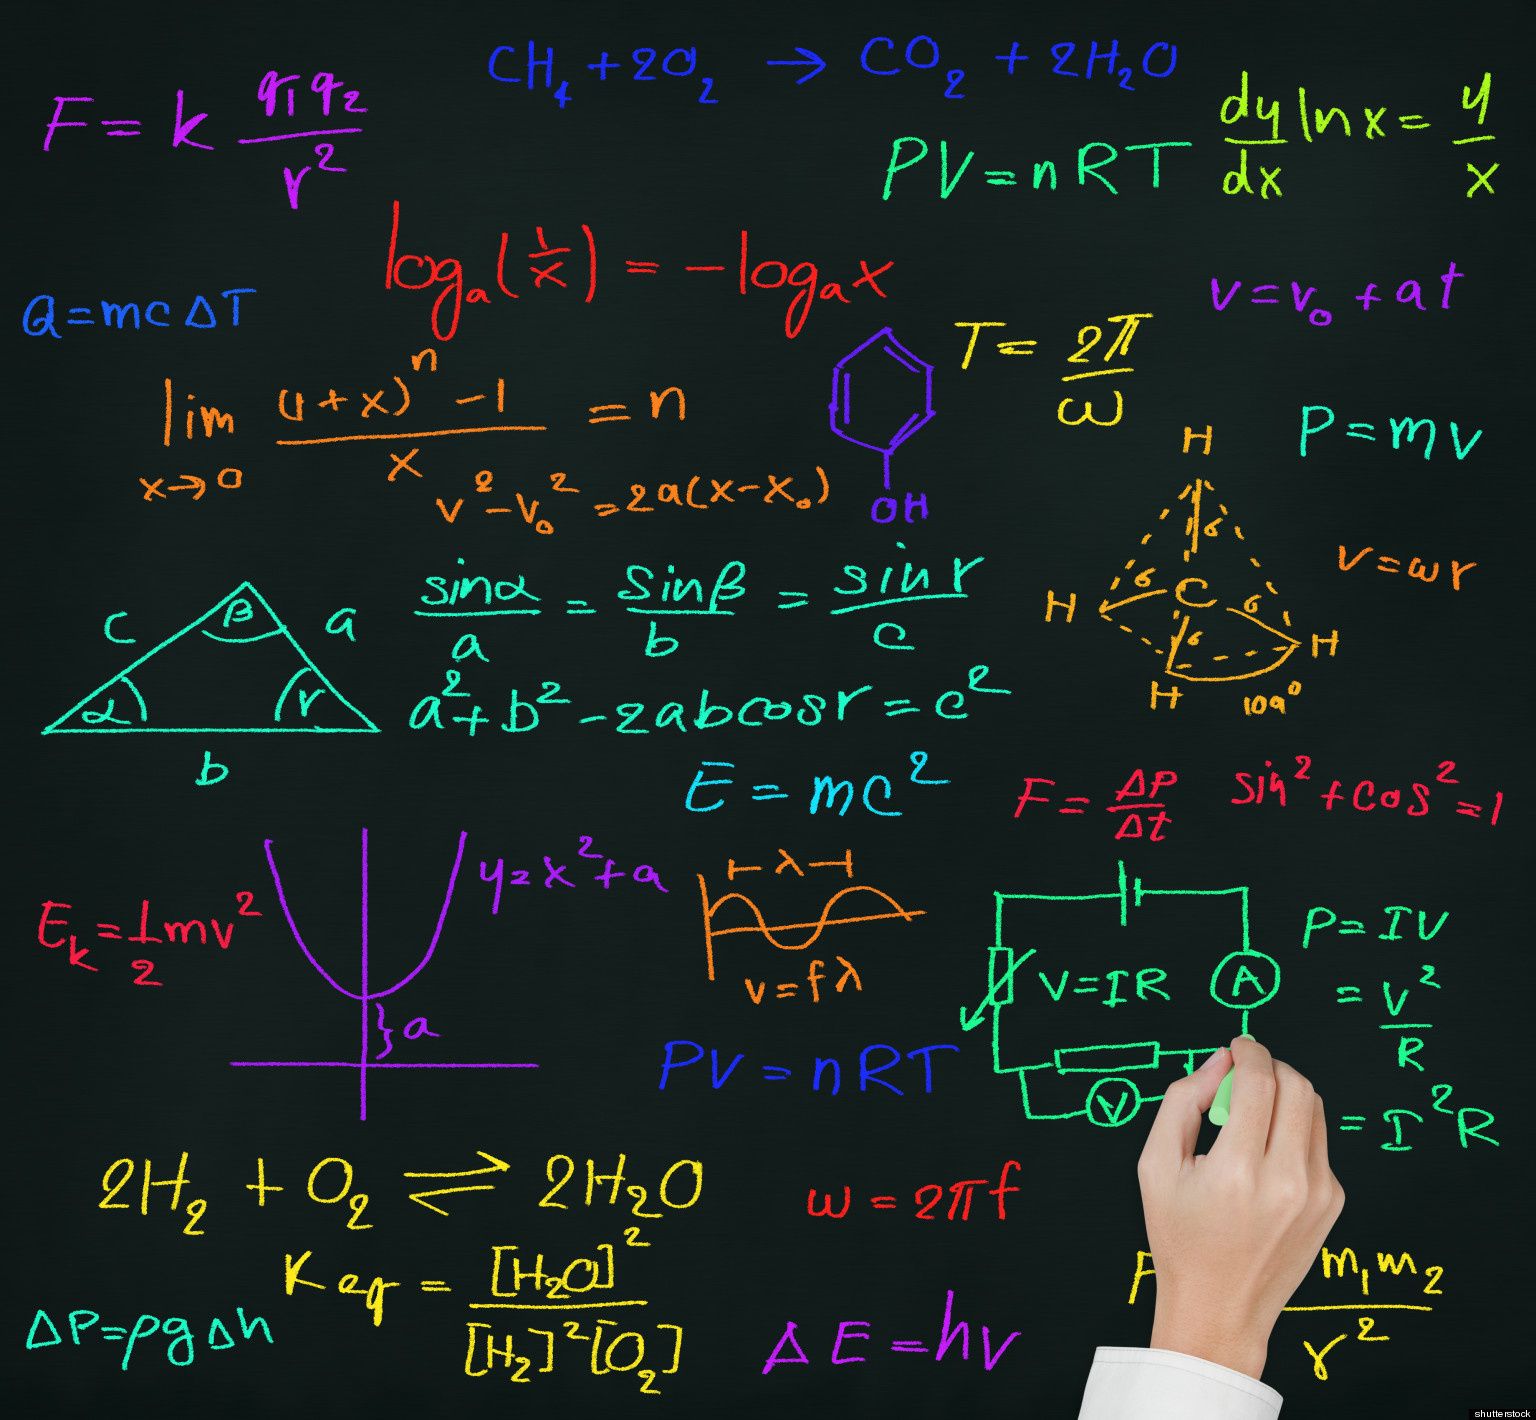 CH₄ + 2O₂ → CO₂ + 2H₂O
F = k q₁q₂/r²
dy/dx ln x = y/x
PV = nRT
logₐ(1/x) = -logₐx
Q = mcΔT
v = v₀ + at
T = 2π/ω
lim x→0 ((1+x)ⁿ - 1)/x = n
P = mv
v² - v₀² = 2a(x - x₀)
OH
H
σ
H σ C σ H
σ
H 109°
v = ωr
c β a
α r
b
sinα/a = sinβ/b = sin r/c
a² + b² - 2abcos r = c²
E = mc²
F = ΔP/Δt
sin² + cos² = 1
y = x² + a
} a
Eₖ = 1/2 mv²
λ
v = fλ
V = IR
A
V
P = IV
= V²/R
= I²R
PV = nRT
2H₂ + O₂ ⇌ 2H₂O
ω = 2πf
Keq = [H₂O]²/[H₂]²[O₂]
ΔP = ρgΔh
ΔE = hν
F m₁m₂/r²
shutterstock